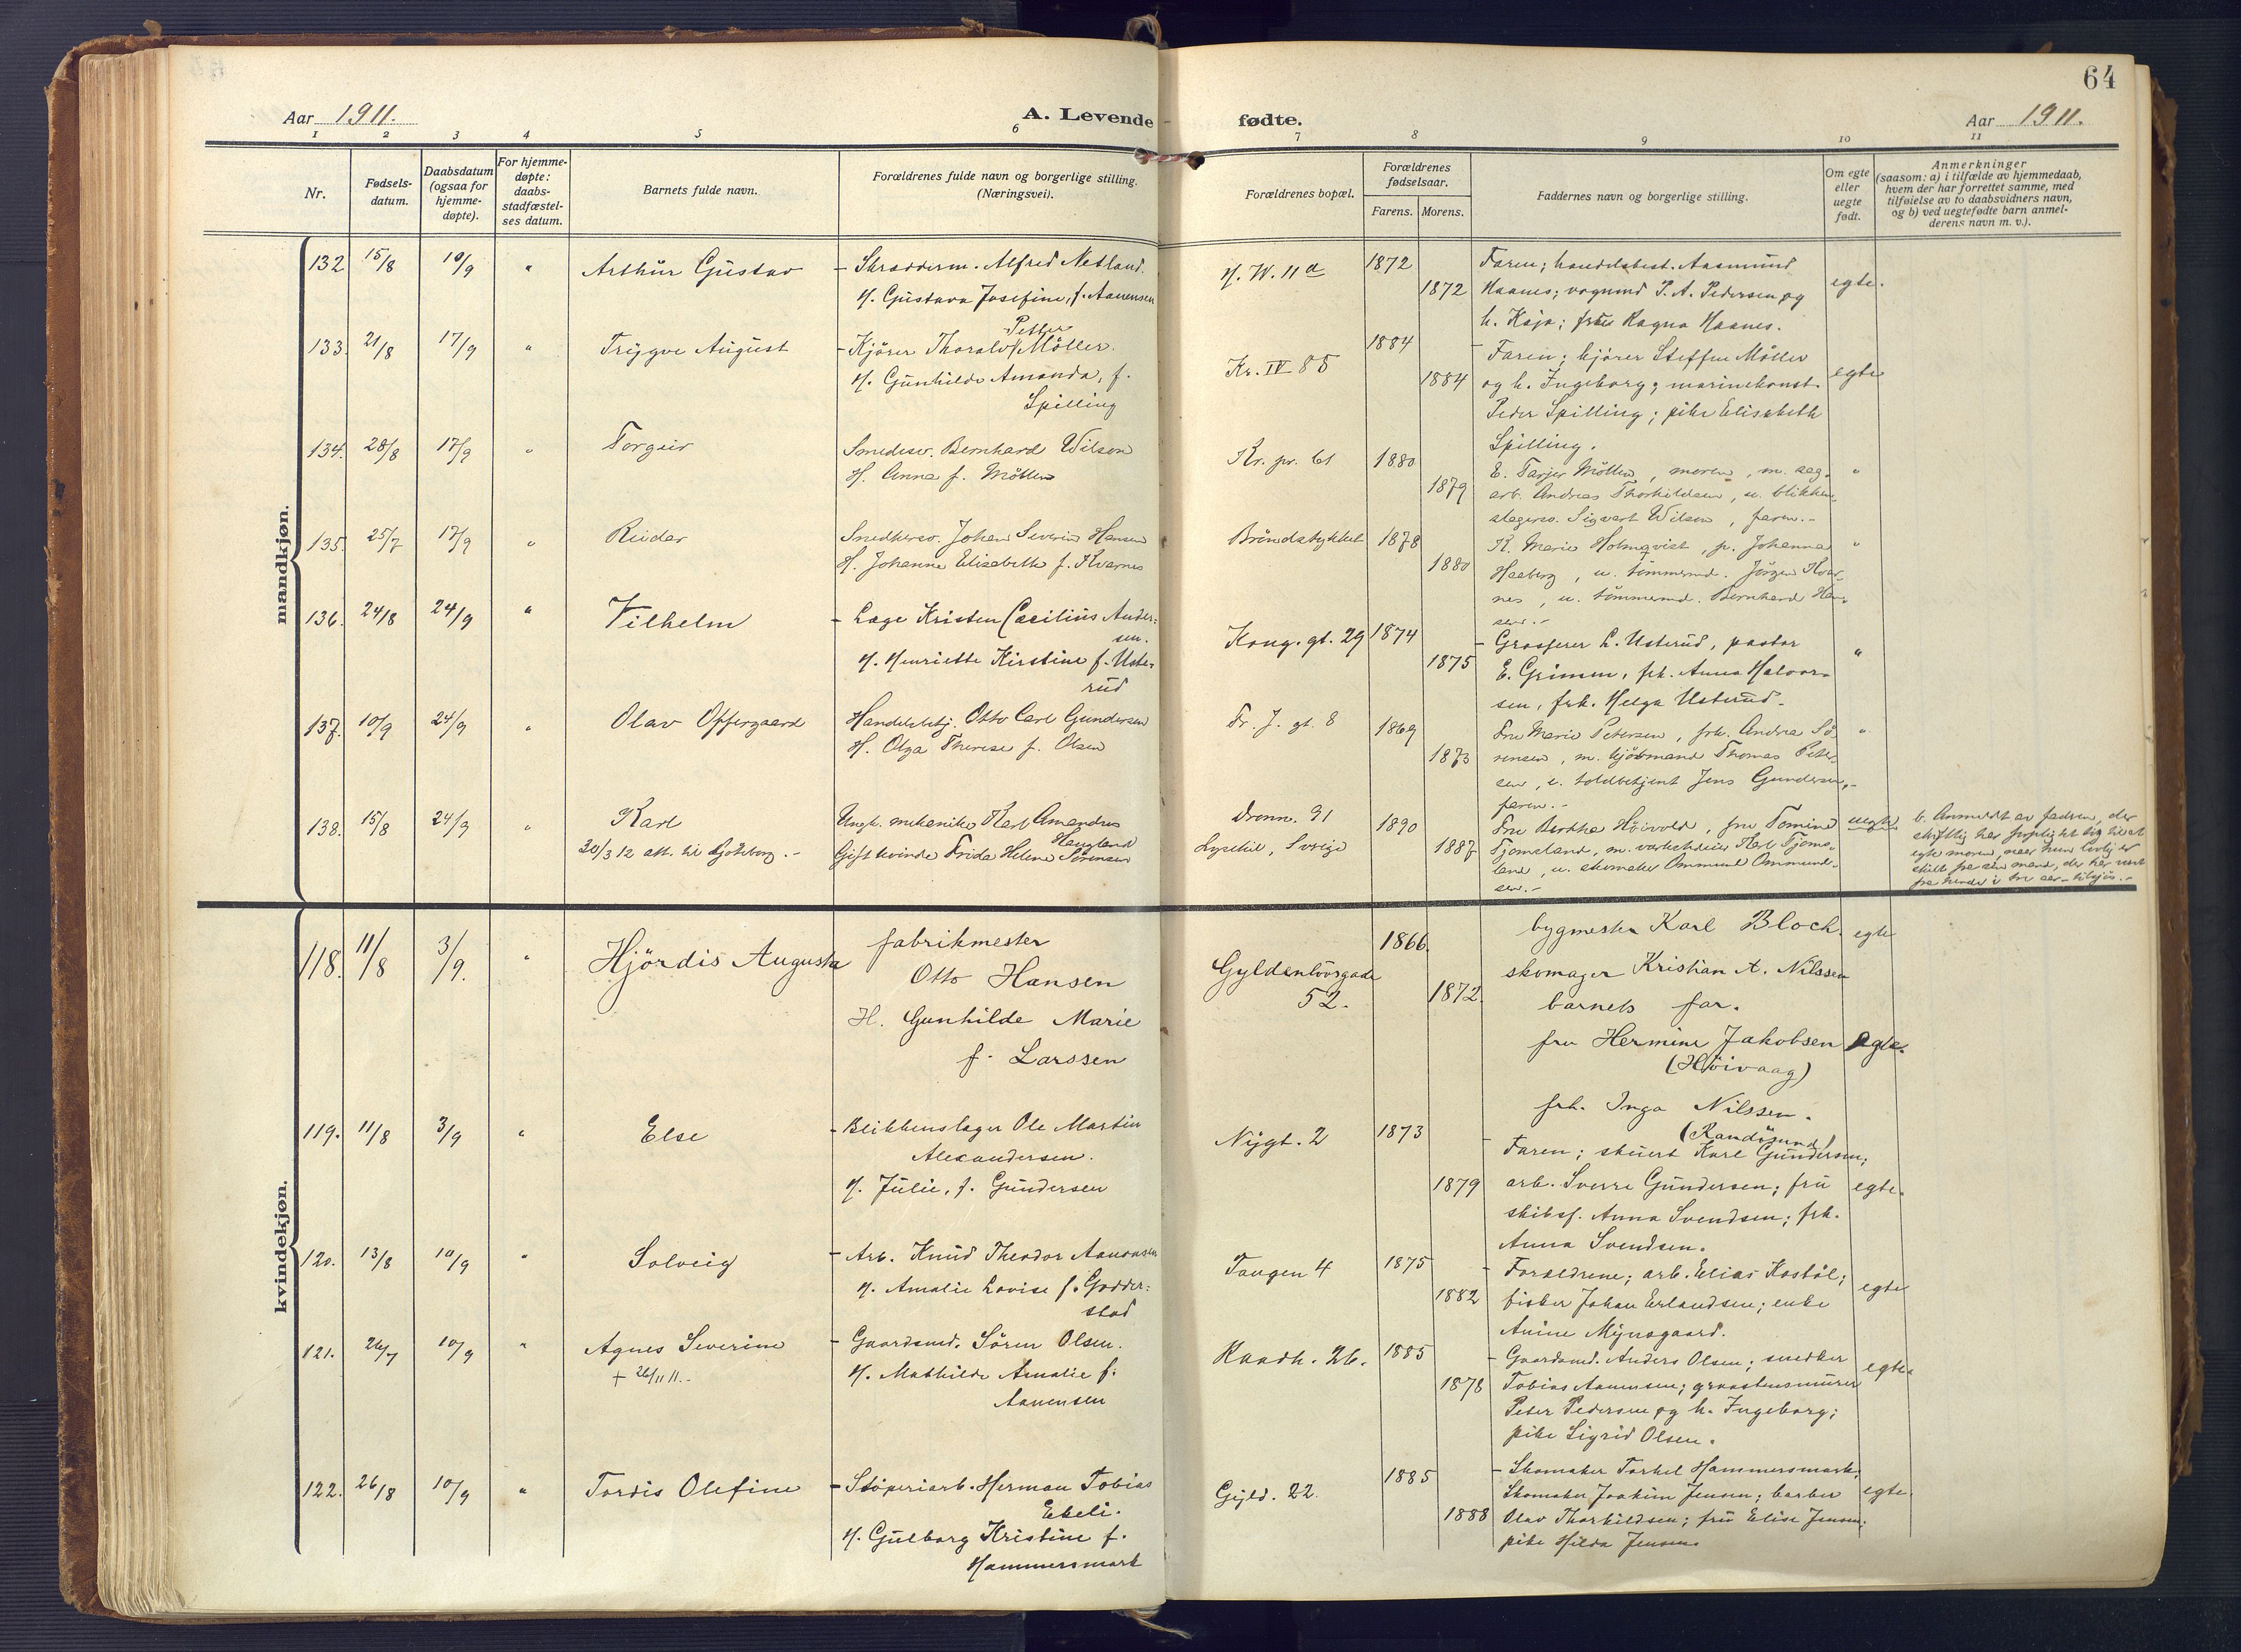 64
Aar 1911.
A. Levende fødte.
Aar 1911.
1 2 3 4 5 6 7 8 9 10 11
Nr.
Fødsels-
datum.
Daabsdatum
(ogsaa for
hjemme-
døpte).
For hjemme-
døpte:
daabs-
stadfæstel-
ses datum.
Barnets fulde navn.
Forældrenes fulde navn og borgerlige stilling.
(Næringsvei).
Forældrenes bopæl.
Forældrenes
fødselsaar.
Farens. Morens.
Faddernes navn og borgerlige stilling.
Om egte
eller
uegte
født.
Anmerkninger
(saasom: a) i tilfælde av hjemmedaab,
hvem der har forrettet samme, med
tilføielse av to daabsvidners navn,
og b) ved uegtefødte barn anmel-
derens navn m. v.).
mandkjøn.
132 15/8 10/9 "
Arthur Gustav
- Skrædderm. Alfred Netland.
H. Gustava Josefine, f. Aanensen
H. W. 11 a
1872
1872
Faren; handelsbest. Aasmund
Haanes; vognmd P. A. Pedersen og
h. Kaja; frk Ragna Haanes.
egte.
133. 21/8 17/9 "
Trygve August
Petter
- Kjører Thoralv Møller.
H. Gunhilde Amanda, f.
Spilling
Kr. IV 85
1884
1884
- Faren; kjører Steffen Møller
og h. Ingeborg; marinekonst.
Peder Spilling; pike Elisabeth
Spilling.
egte
134. 28/8 17/9 "
Torgeir
Smedesv. Bernhard Wilson
H. Anna f. Møller
Kr. pr. 61
1880
1879
E. Tarjer Møller, moren, m. sag-
arb. Andreas Thorkildsen, u. blikken-
slagersv. Sigvart Wilson, faren.-
"
135. 25/7 17/9 "
Reidar
Snedkersv. Johan Severin Hansen
H. Johanne Elisabeth f. Kvarnes
Brøndstykket
1878
1880
K. Marie Holmqvist, p. Johanna
Haaberg, u. tømmermd. Jørgen Kvar-
nes, u. tømmermd. Bernhard Han-
sen.-
"
136. 24/8 24/9 "
Vilhelm
- Læge Kristen Cæcilius Ander-
sen.
H. Henriette Kirstine f. Uste-
rud
Kong. gt. 29
1874
1875
- Grosserer L. Usterud, pastor
E. Grimsen, frk. Anna Halvor-
sen, frk. Helga Usterud.
"
137. 10/9 24/9 "
Olav Offergaard
Handelsbetj. Otto Carl Gundersen
H. Olga Therese f. Olsen
Fr. J. gt. 8
1869
1873
Fru Marie Petersen, frk. Andrea Sø-
rensen, m. kjøbmand Thomas Peter-
sen, u. toldbetjent Jens Gundersen,-
faren.-
"
138. 15/8 24/9 "
Karl
20/3 12 att. til Gøteborg.-
Ungk. mekaniker Karl Amandus
Haugland
Gift kvinde Frida Helene Sørensen
Dronn. 31
Lysekil, Sverige
1890
1887
Fru Bertha Høivold, fru Tomine
Tjomsland, m. værksteier Karl Tjoms-
land, u. skomaker Ommund Ommund-
sen.-
uegte
b. Anmeldt av faderen, der
skriftlig har forpligtet sig til at
egte moren, naar hun lovlig er
skilt fra sin mand, der har været
fra hende i tre aar
kvindekjøn.
118. 11/8 3/9. "
Hjördis Augusta
fabrikmester
Otto Hansen
H. Gunhilde Marie
f. Larssen
Gyldenlövsgade
52.
1866.
1872.
bygmester Karl Bloch.
skomager Kristian A. Nilssen
barnets far.
fru Hermine Jakobsen
(Höivaag)
frk. Inga Nilssen.
(Randösund)
egte
egte.
119. 11/8 3/9 "
Else
- Blikkenslager Ole Martin
Alexandersen.
H. Julie, f. Gundersen
Nygt. 2
1873
1879
- Faren; skuert Karl Gundersen;
arb. Sverre Gundersen; fru
skibsf. Anna Svendsen; frk.
Anna Svendsen.
egte.
120. 13/8 10/9 "
Solveig
- Arb. Knud Theodor Aanonsen
H. Amalie Lovise f. Godder-
stad
Tangen 4
1875
1882
- Forældrene; arb. Elias Kostøl;
fisker Johan Erlandsen; enke
Anine Myrsgaard.
egte
121. 26/7 10/9 "
Agnes Severine
+ 26/11 11.-
- Gaardsmd. Søren Olsen.
H. Mathilde Amalie f.
Aanensen
Raadh. 26.
1885
1878
- Gaardsmd. Anders Olsen; snedker
Tobias Aanensen; graastensmurer
Peter Pedersen og h. Ingeborg;
pike Sigrid Olsen.
egte.
122. 26/8 10/9 "
Tordis Olefine
- Støperiarb. Herman Tobias
Ekeli.
H. Gulborg Kristine f.
Hammersmark
Gyld. 22.
1885
1888
- Skomaker Torkel Hammersmark;
Skomaker Joakim Jensen; barber
Olav Thorkildsen; fru Elise Jensen;
pike Hilda Jensen.
egte.